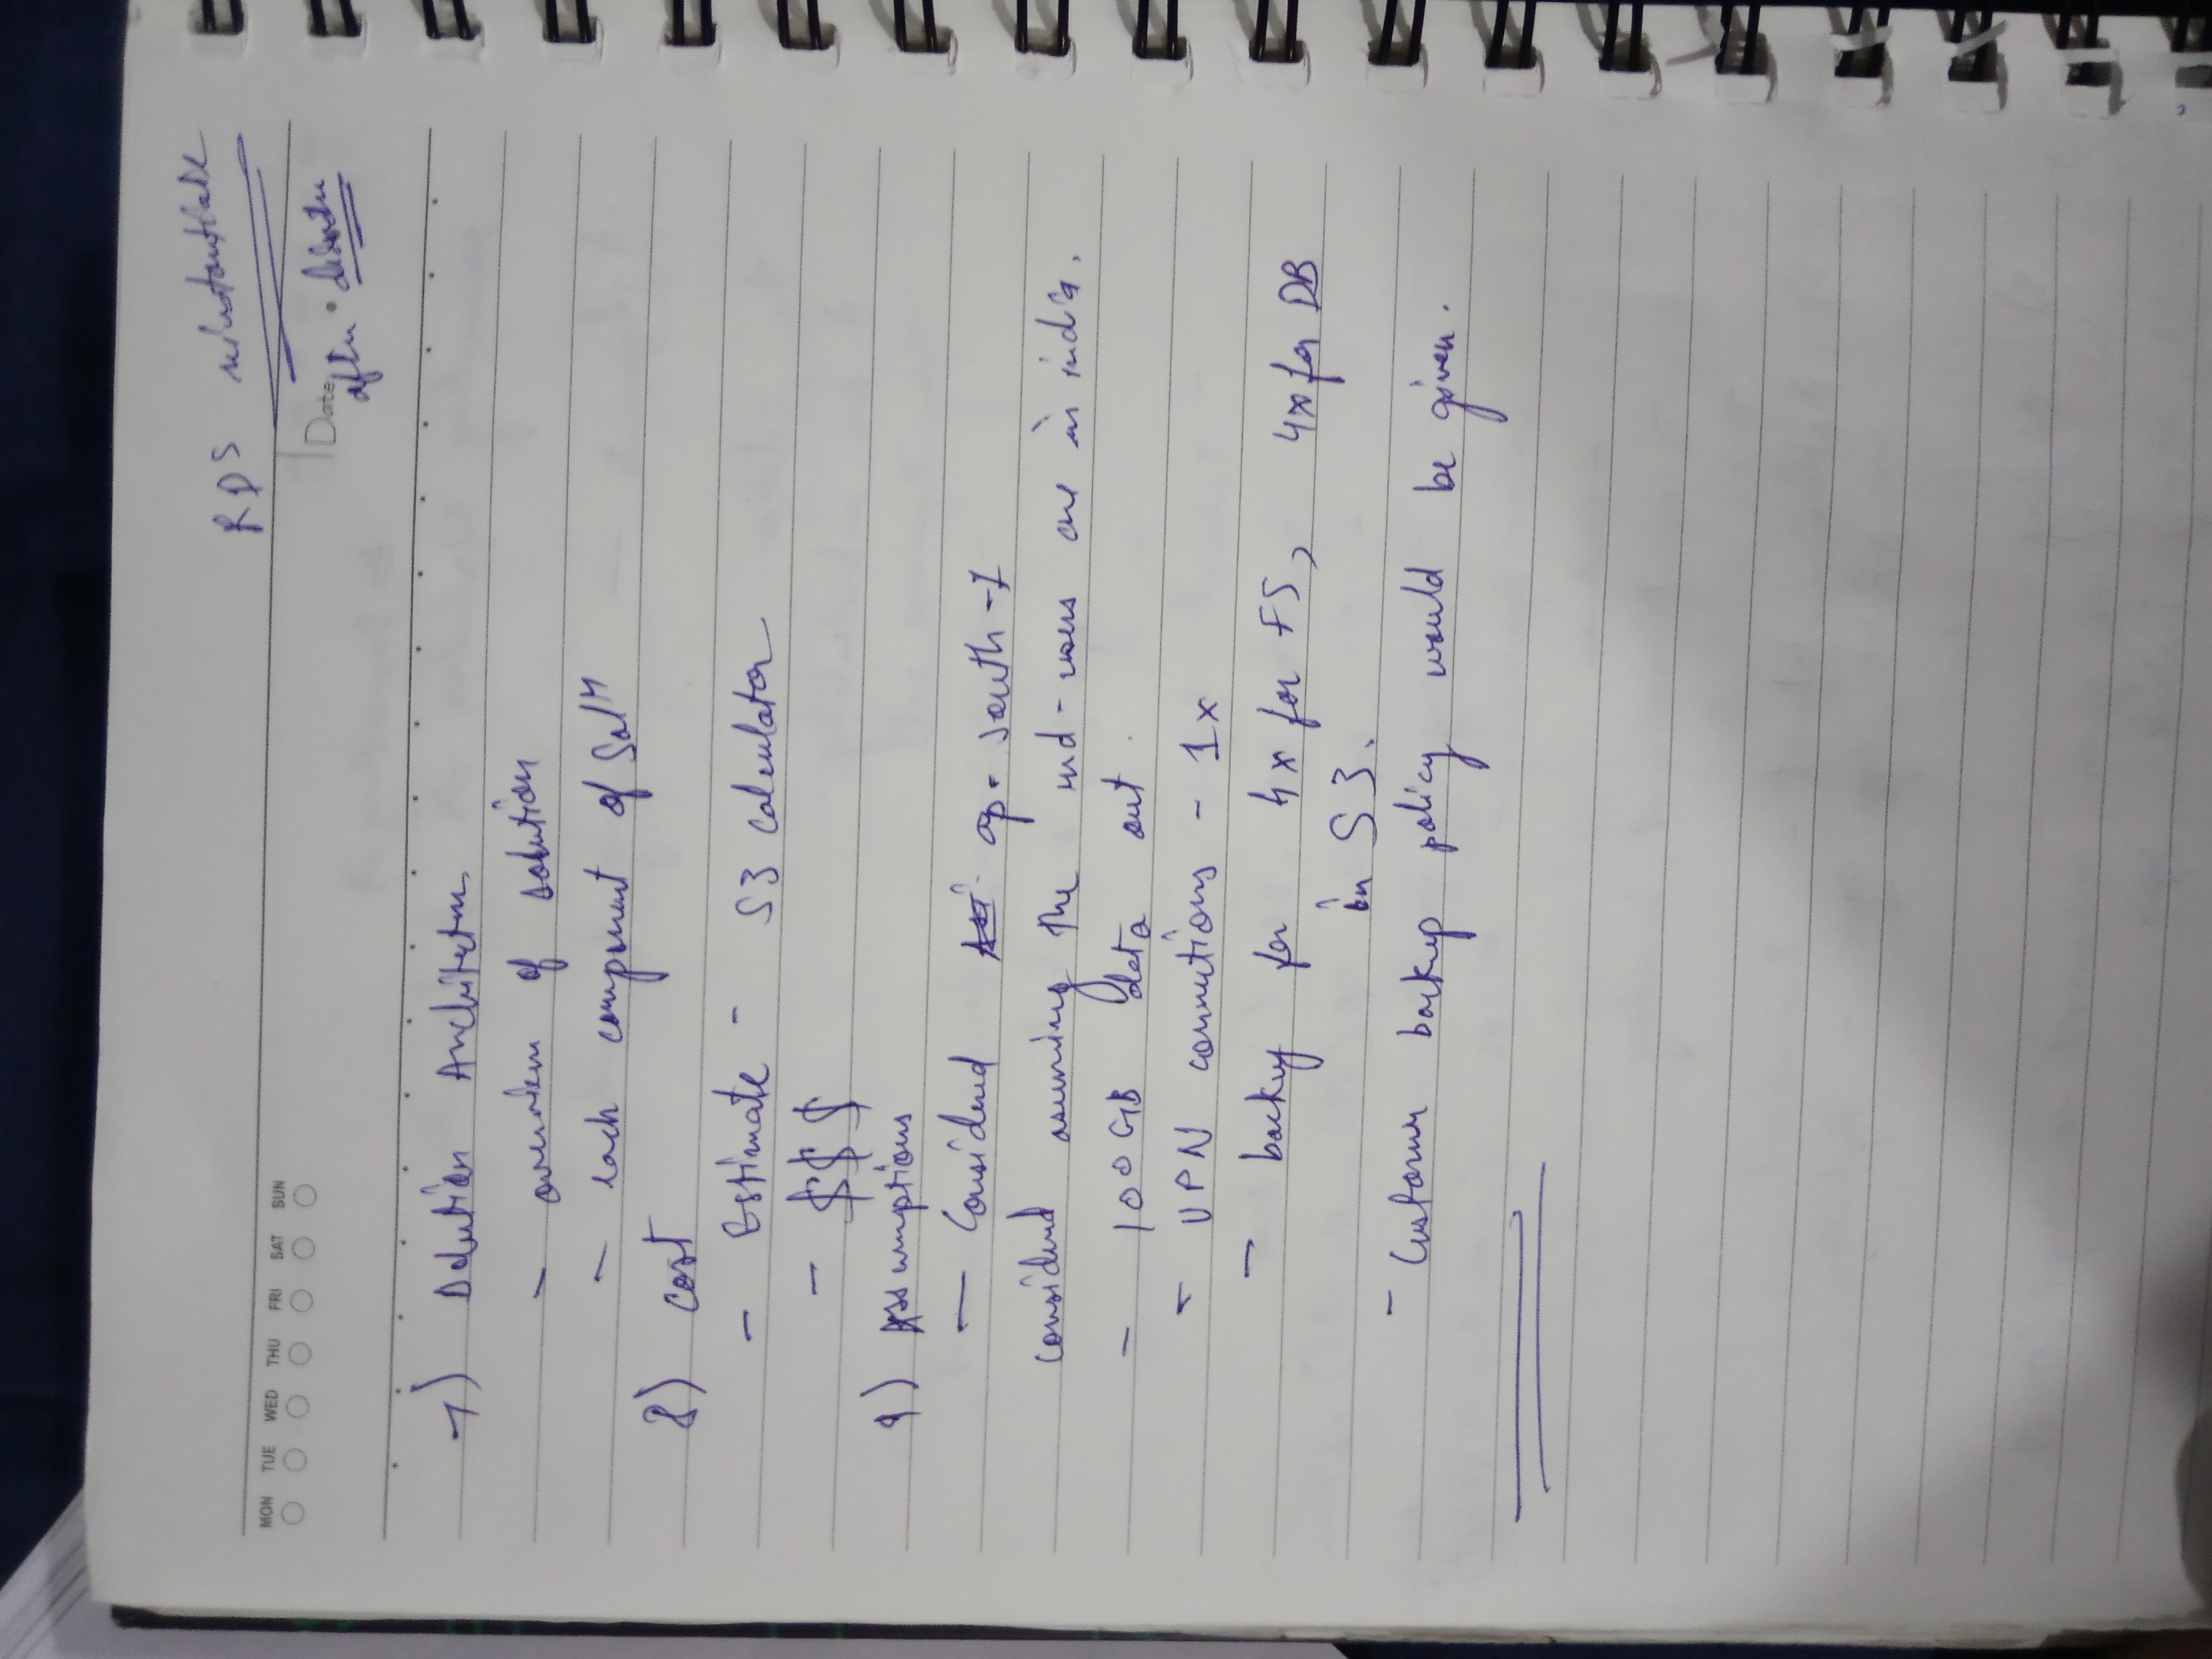 RDS
MON TUE WED THU FRI SAT SUN
Date
after
7) Solution Architectur
- overview of solution
- each component of Solⁿ
8) Cost
- Estimate - S3 calculator
- $$$
9) Assumptions
- Considered ap-south-1
considered assuming the end-users are in india.
- 100GB data out.
- VPN connections - 1x
- backup for 4x for FS, 4x for DB
in S3.
- Customer backup policy would be given.